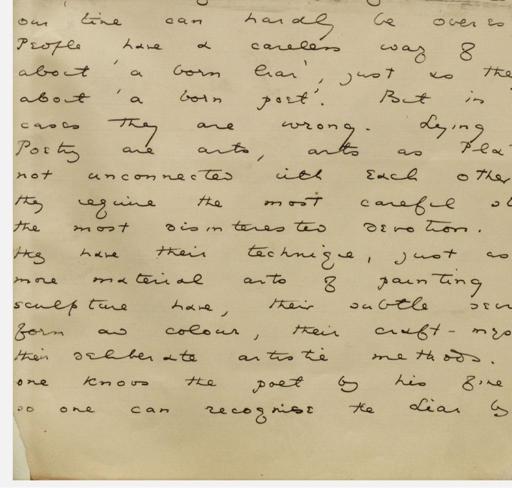 our time can hardly be overes
People have a careless way of
about 'a born liar', just as the
about 'a born poet'. But in
cases they are wrong. Lying
Poetry are arts, arts as Pla
not unconnected with each other
they require the most careful st
the most disinterested devotion.
they have their technique, just as
more material arts of painting
sculpture have, their subtle secr
form and colour, their craft-mys
their deliberate artistic methods.
one knows the poet by his fine
so one can recognise the Liar by